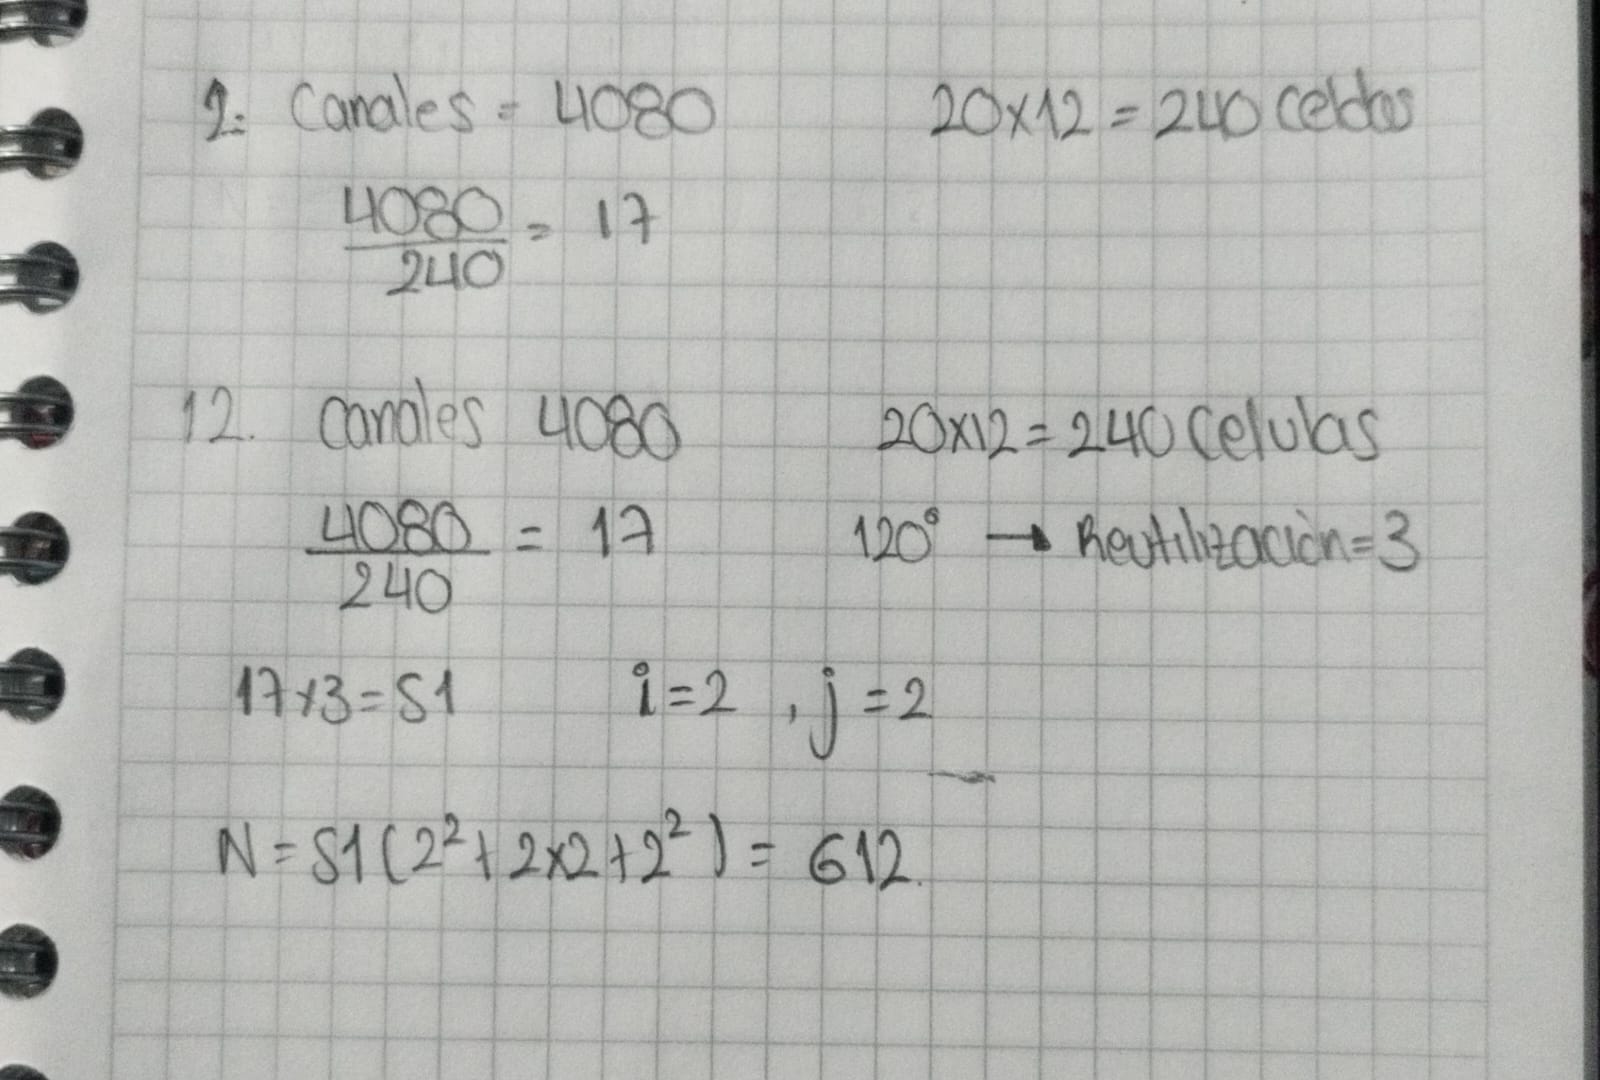 2. Canales = 4080 20x12 = 240 celdas
4080/240 = 17
12. Canales 4080 20x12 = 240 Celulas
4080/240 = 17 120° → Reutilización = 3
17x3 = 51 i = 2 , j = 2
N = 51 (2² + 2x2 + 2²) = 612.